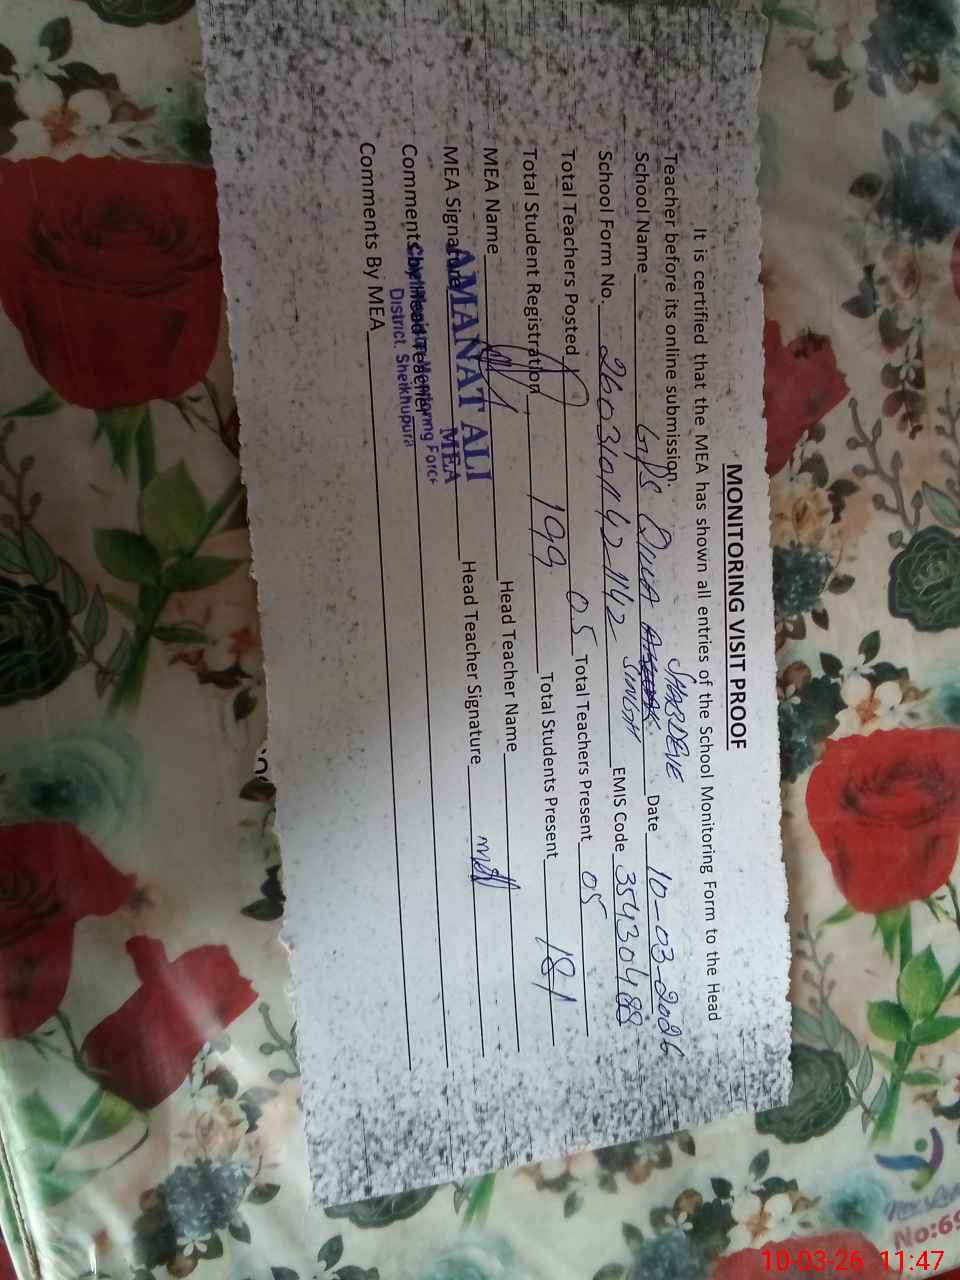 MONITORING VISIT PROOF
It is certified that the MEA has shown all entries of the School Monitoring Form to the Head
Teacher before its online submission.
SHABDEVE
School Name GPS Qila SINGH Date 10-03-2026
School Form No. EMIS Code 35430488
Total Teachers Posted 05 Total Teachers Present 05
Total Student Registration 199 Total Students Present 181
MEA Name Head Teacher Name
AMANAT ALI
MEA Signature Head Teacher Signature
MEA
Comments by Head Teacher
Monitoring Force
District. Sheikhupura
Comments By MEA
No:69
10-03-26 11:47